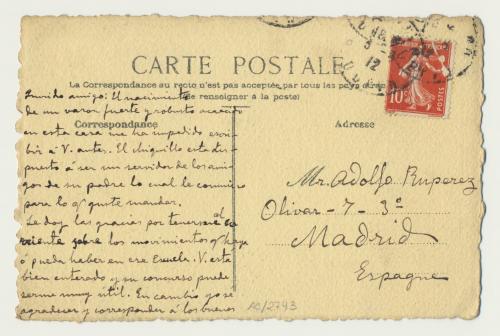 CARTE POSTALE
La Correspondance au recto n'est pas acceptée par tous les pays
(se renseigner à la poste)
Correspondance
Adresse
Querido amigo: El nacimiento
de un varon fuerte y robusto acaecido
en esta casa me ha impedido escri-
bir á V. antes. El chiquillo esta dis-
puesto á ser un servidor de los ami-
gos de su padre lo cual le comunico
para lo q. guste mandar.
Le doy las gracias por tenerme al co-
rriente sobre los movimientos q. haya
ó pueda haber en esa Escuela. V. está
bien enterado y su concurso puede
serme muy útil. En cambio yo sé
agradecer y corresponder á los buenos
Mr. Adolfo Ruperez
Olivar-7-3º
Madrid
Espagne
10
POSTES
AC/2743